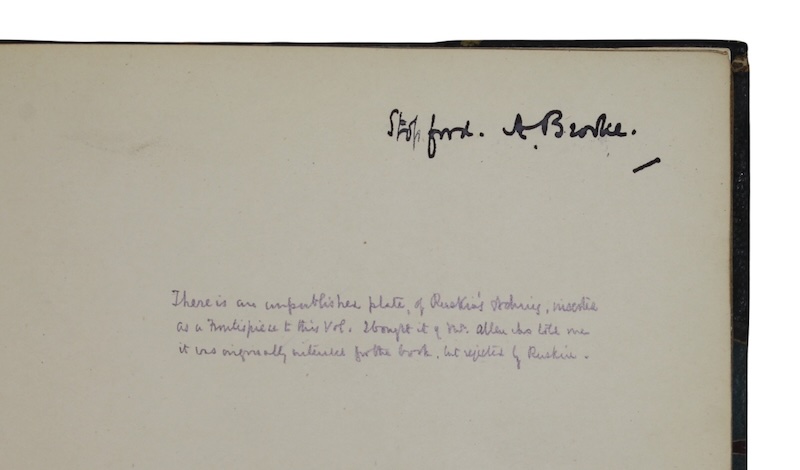 Stopford. A. Brooke.
There is an unpublished plate, of Ruskin's etching, inserted
as a Frontispiece to this Vol. I bought it of Mr. Allen who told me
it was originally intended for the book, but rejected by Ruskin.